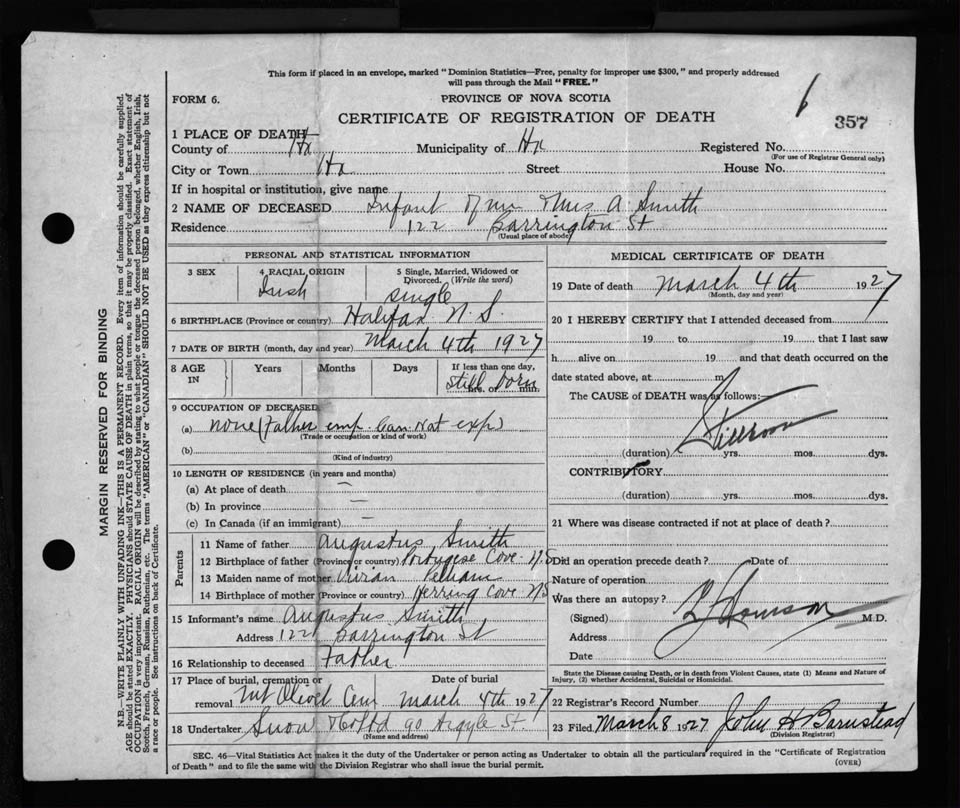 This form if placed in an envelope, marked "Dominion Statistics—Free, penalty for improper use $300," and properly addressed
will pass through the Mail "FREE."
FORM 6.
PROVINCE OF NOVA SCOTIA
6
CERTIFICATE OF REGISTRATION OF DEATH
357
1 PLACE OF DEATH—
County of Hx Municipality of Hx Registered No.
(For use of Registrar General only)
City or Town Hx Street House No.
If in hospital or institution, give name
2 NAME OF DECEASED Infant of Mr Thos A Smith
Residence 122 Barrington St
(Usual place of abode)
PERSONAL AND STATISTICAL INFORMATION
3 SEX 4 RACIAL ORIGIN 5 Single, Married, Widowed or
Divorced. (Write the word)
Irish single
6 BIRTHPLACE (Province or country) Halifax N.S.
7 DATE OF BIRTH (month, day and year) March 4th 1927
8 AGE Years Months Days If less than one day,
IN Still born
hrs. or min.
9 OCCUPATION OF DECEASED
(a) none (Father emp. Can. Nat exp)
(Trade or occupation or kind of work)
(b)
(Kind of industry)
10 LENGTH OF RESIDENCE (in years and months)
(a) At place of death —
(b) In province —
(c) In Canada (if an immigrant) —
Parents
11 Name of father Augustus Smith
12 Birthplace of father (Province or country) Portugese Cove N.S
13 Maiden name of mother Vivian Pelham
14 Birthplace of mother (Province or country) Herring Cove NS
15 Informant's name Augustus Smith
Address 122 Barrington St
16 Relationship to deceased Father
17 Place of burial, cremation or Date of burial
removal Mt Olivet Cem March 4th 1927
18 Undertaker Snow & Co Ltd 90 Argyle St.
(Name and address)
MEDICAL CERTIFICATE OF DEATH
19 Date of death March 4th 1927
(Month, day and year)
20 I HEREBY CERTIFY that I attended deceased from
19 to 19 that I last saw
h alive on 19 and that death occurred on the
date stated above, at m.
The CAUSE of DEATH was as follows:—
Stillborn
(duration) yrs. mos. dys.
CONTRIBUTORY
(duration) yrs. mos. dys.
21 Where was disease contracted if not at place of death?
Did an operation precede death? Date of
Nature of operation
Was there an autopsy?
(Signed) M.D.
Address
Date
State the Disease causing Death, or in death from Violent Causes, state (1) Means and Nature of
Injury, (2) whether Accidental, Suicidal or Homicidal.
22 Registrar's Record Number
23 Filed March 8 1927 John H Barnstead
(Division Registrar)
SEC. 46—Vital Statistics Act makes it the duty of the Undertaker or person acting as Undertaker to obtain all the particulars required in the "Certificate of Registration
of Death" and to file the same with the Division Registrar who shall issue the burial permit. (OVER)
MARGIN RESERVED FOR BINDING
N.B.—WRITE PLAINLY WITH UNFADING INK—THIS IS A PERMANENT RECORD. Every item of information should be carefully supplied.
AGE should be stated EXACTLY. PHYSICIANS should STATE CAUSE OF DEATH in plain terms, so that it may be properly classified. Exact statement of
OCCUPATION is very important. RACIAL ORIGIN will be described by stating to what people or tongue the deceased person belonged, whether English, Irish,
Scotch, French, German, Russian, Ruthenian, etc. The terms "AMERICAN" or "CANADIAN" SHOULD NOT BE USED as they express citizenship but not
a race or people. See instructions on back of Certificate.